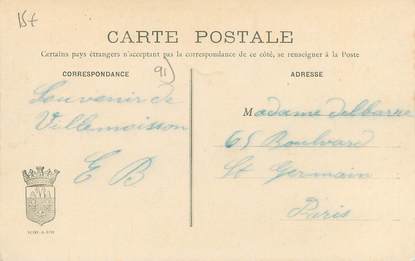 15+
CARTE POSTALE
Certains pays étrangers n'acceptant pas la correspondance de ce côté, se renseigner à la Poste
CORRESPONDANCE
91
ADRESSE
Souvenir de
Villemoisson
E B
Madame Delbarre
65 Boulvard
St Germain
Paris